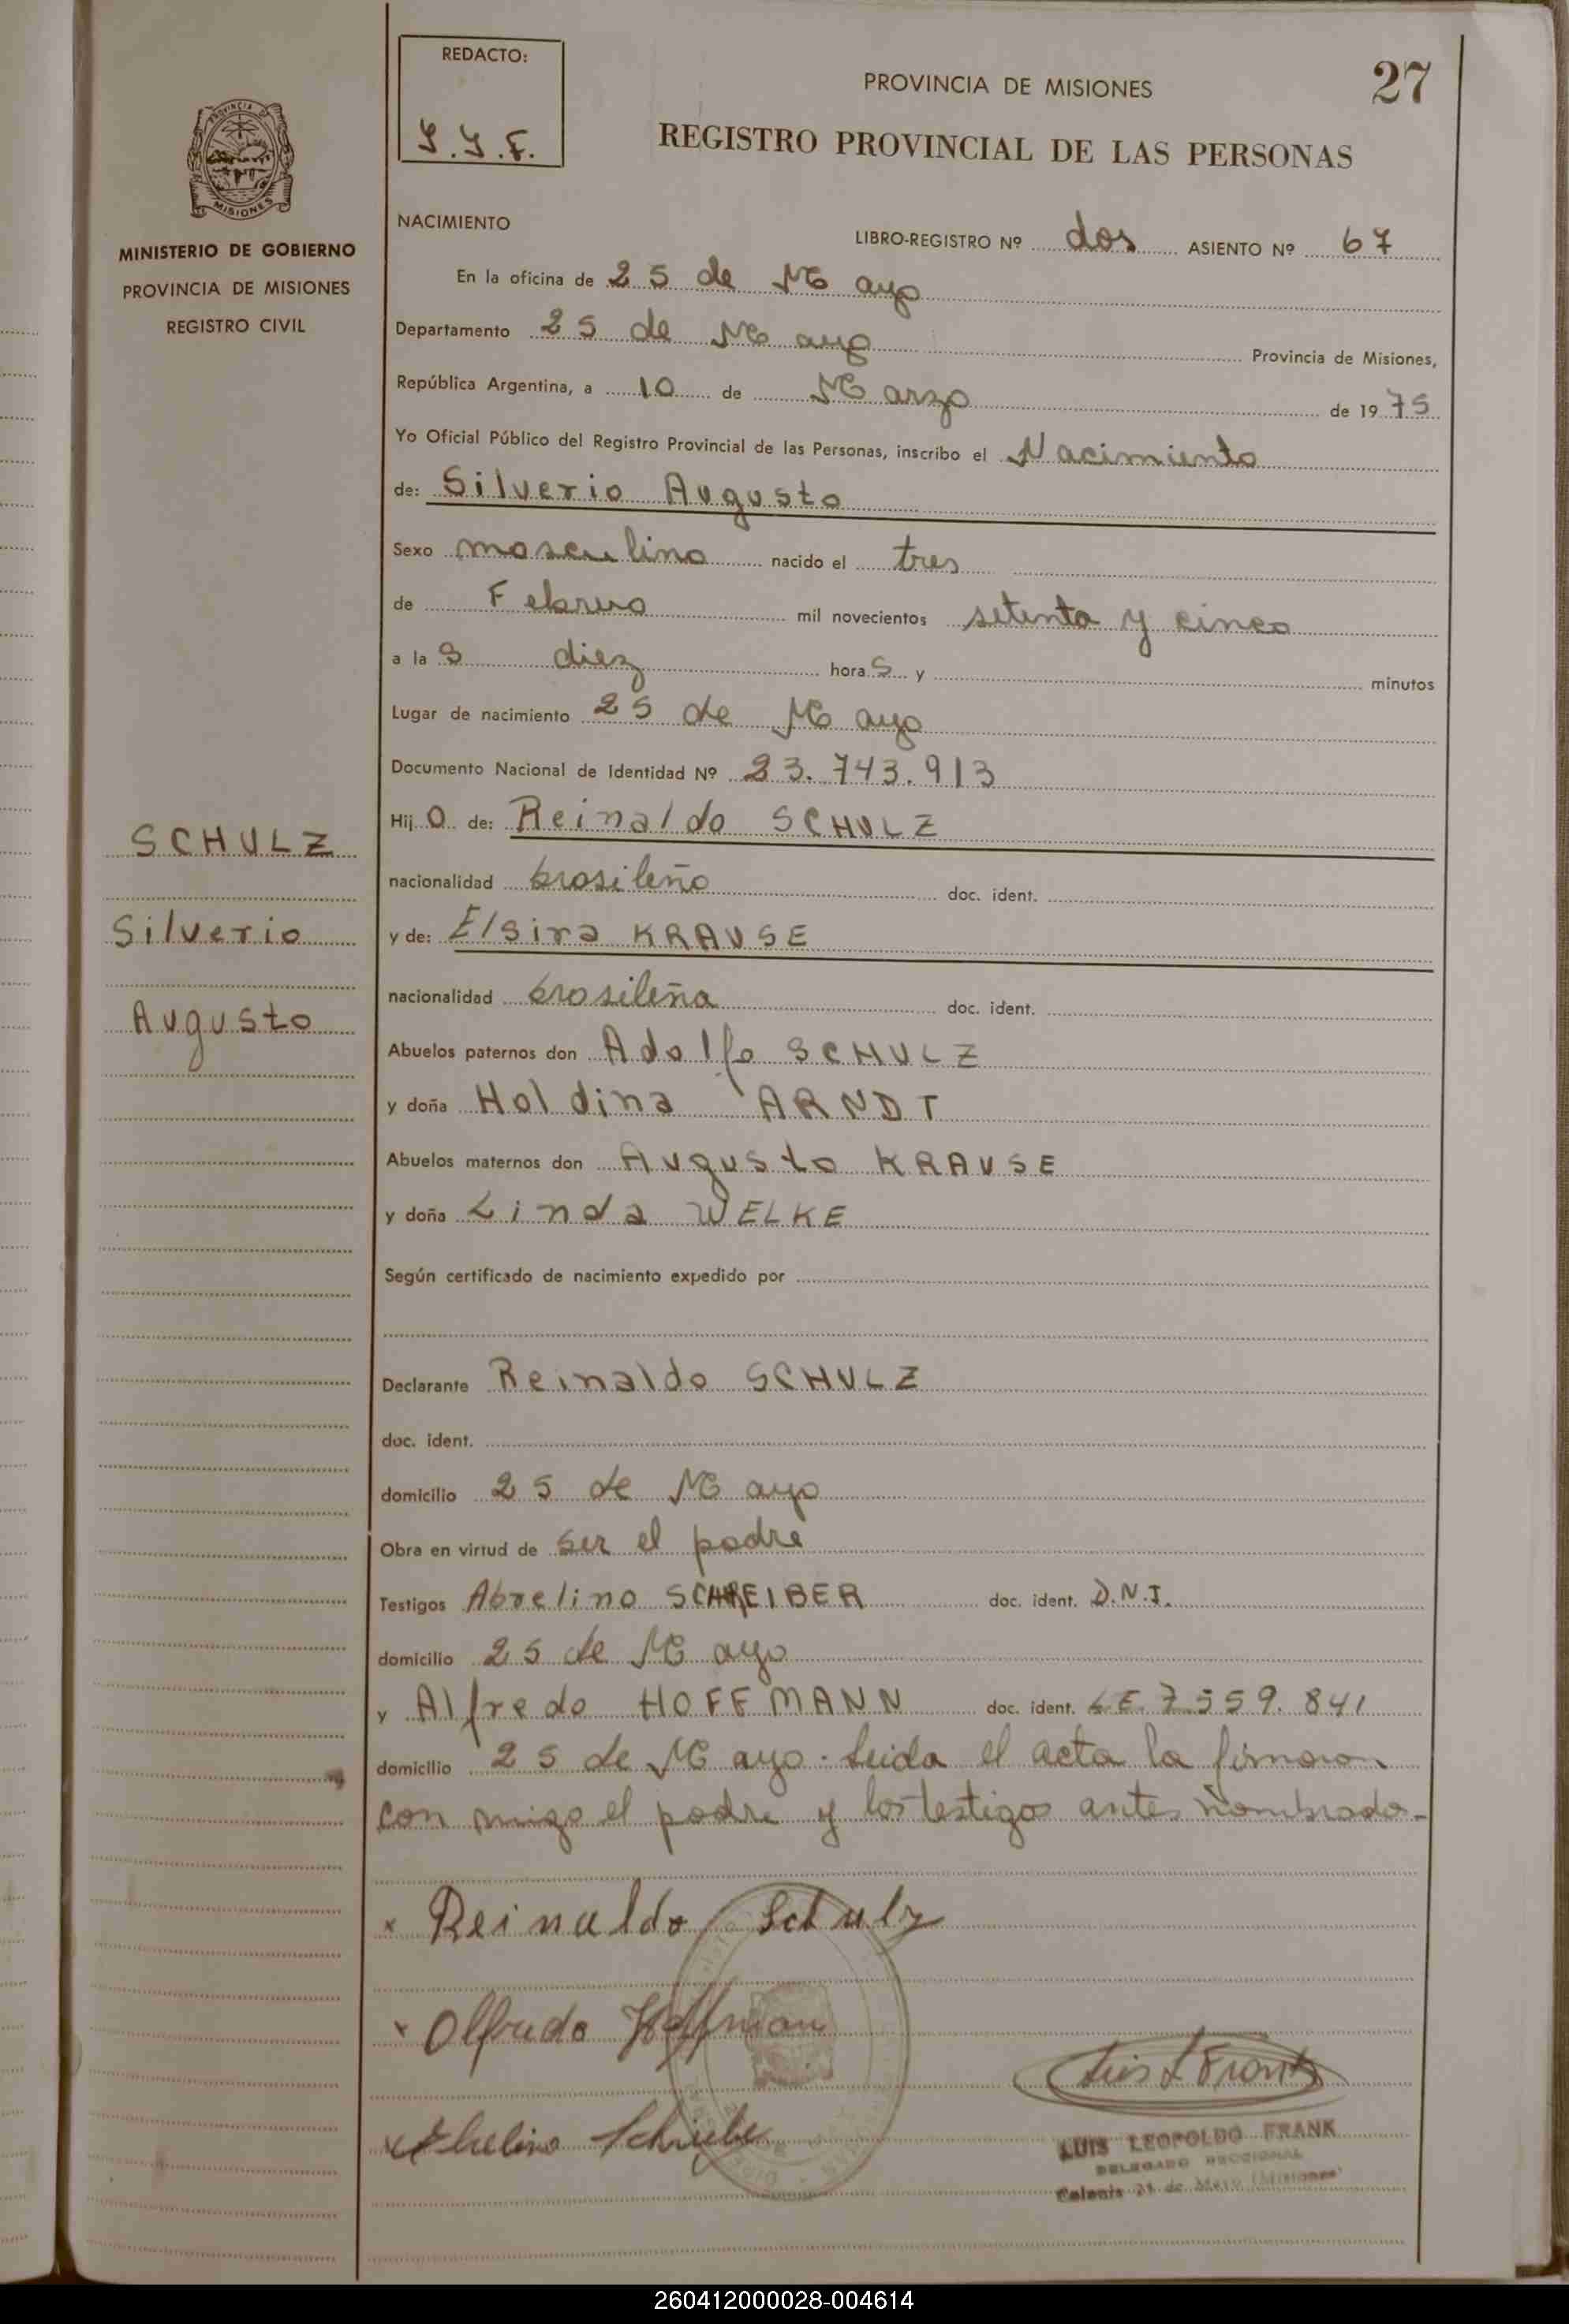 REDACTO:
Y.Y.F.
PROVINCIA DE MISIONES
27
REGISTRO PROVINCIAL DE LAS PERSONAS
PROVINCIA
MISIONES
MINISTERIO DE GOBIERNO
PROVINCIA DE MISIONES
REGISTRO CIVIL
SCHULZ
Silverio
Augusto
NACIMIENTO
LIBRO-REGISTRO Nº dos ASIENTO Nº 67
En la oficina de 25 de Mayo
Departamento 25 de Mayo Provincia de Misiones,
República Argentina, a 10 de Marzo de 1975
Yo Oficial Público del Registro Provincial de las Personas, inscribo el Nacimiento
de: Silverio Augusto
Sexo masculino nacido el tres
de Febrero mil novecientos setenta y cinco
a las diez horas y minutos
Lugar de nacimiento 25 de Mayo
Documento Nacional de Identidad Nº 23.743.913
Hijo de: Reinaldo SCHULZ
nacionalidad brasileño doc. ident.
y de: Elsira KRAUSE
nacionalidad brasileña doc. ident.
Abuelos paternos don Adolfo SCHULZ
y doña Holdina ARNDT
Abuelos maternos don Augusto KRAUSE
y doña Linda WELKE
Según certificado de nacimiento expedido por
Declarante Reinaldo SCHULZ
doc. ident.
domicilio 25 de Mayo
Obra en virtud de ser el padre
Testigos Abrelino SCHREIBER doc. ident. D.N.I.
domicilio 25 de Mayo
y Alfredo HOFFMANN doc. ident. LE 7.559.841
domicilio 25 de Mayo. Leida el acta la firmaron
con migo el padre y los testigos antes nombrado-
x Reinaldo Schulz
x Olfredo Hoffman
Luis L Frank
LUIS LEOPOLDO FRANK
DELEGADO SECCIONAL
Colonia 25 de Mayo (Misiones)
260412000028-004614